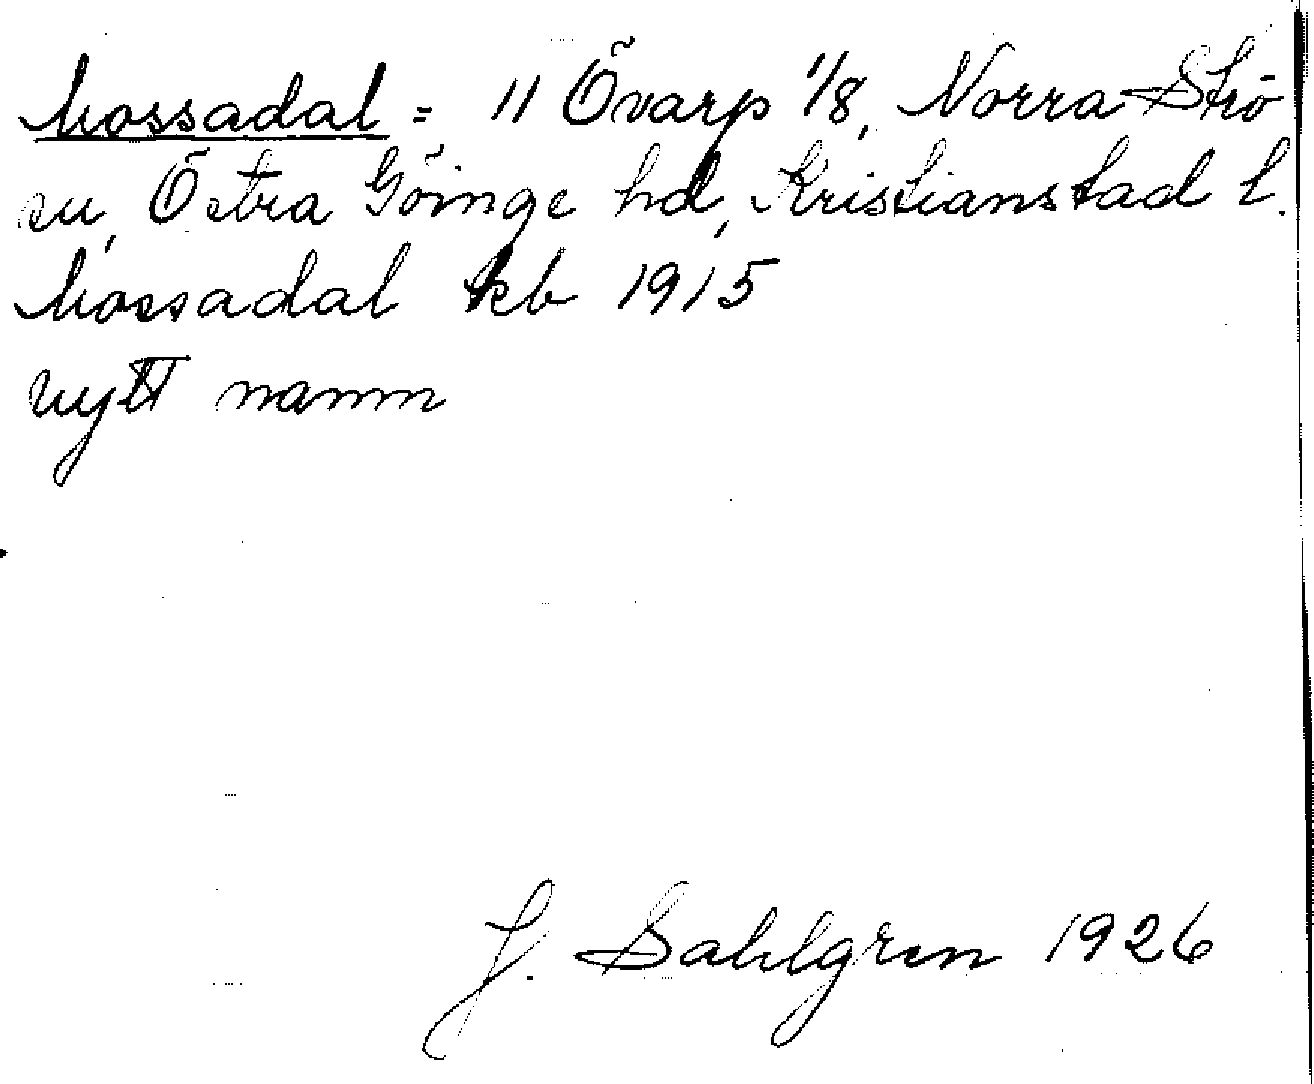 Mossadal = 11 Övarp 1/8, Norra Strö
sn, Östra Göinge hd, Kristianstad l.
Mossadal kb 1915
nytt namn
J. Sahlgren 1926